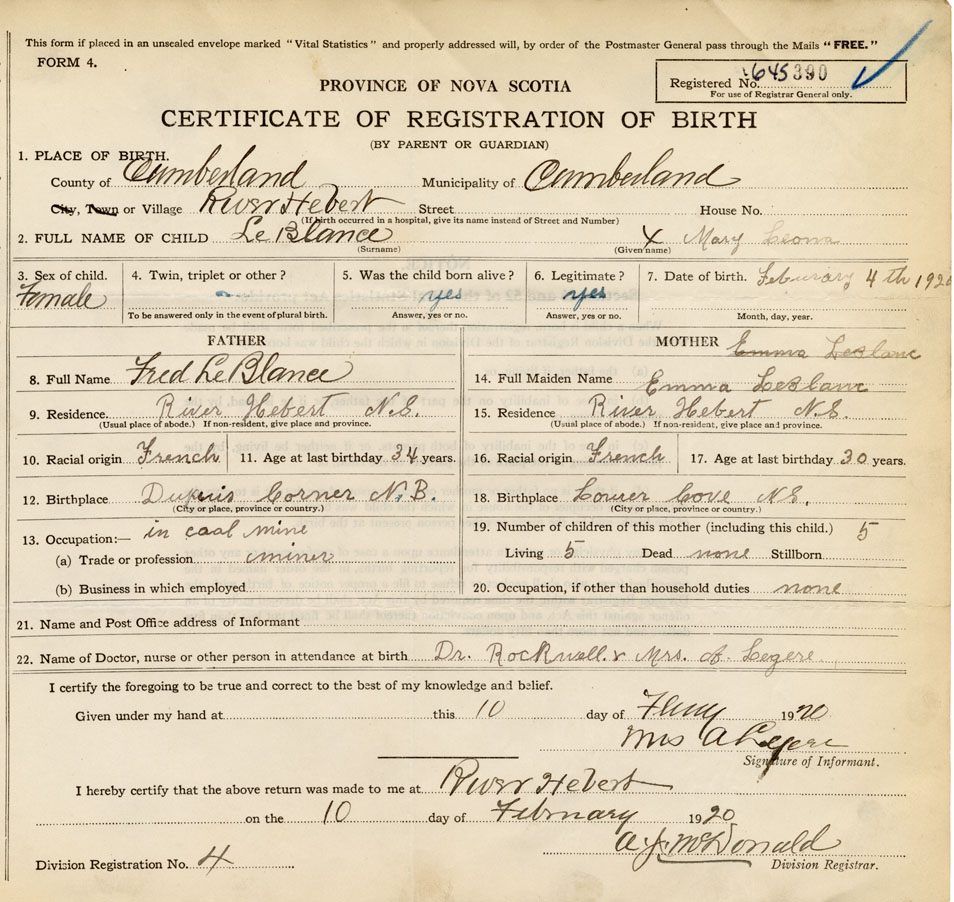 This form if placed in an unsealed envelope marked "Vital Statistics" and properly addressed will, by order of the Postmaster General pass through the Mails "FREE."
FORM 4.
Registered No. 645390
For use of Registrar General only.
PROVINCE OF NOVA SCOTIA
CERTIFICATE OF REGISTRATION OF BIRTH
(BY PARENT OR GUARDIAN)
1. PLACE OF BIRTH.
County of Cumberland Municipality of Cumberland
City, Town or Village River Hebert Street House No.
(If birth occurred in a hospital, give its name instead of Street and Number)
2. FULL NAME OF CHILD Le Blance X Mary Leona
(Surname) (Given name)
3. Sex of child. 4. Twin, triplet or other? 5. Was the child born alive? 6. Legitimate? 7. Date of birth. Feburary 4th 1920
Female yes yes
To be answered only in the event of plural birth. Answer, yes or no. Answer, yes or no. Month, day, year.
FATHER
8. Full Name Fred Le Blance
9. Residence. River Hebert N.S.
(Usual place of abode.) If non-resident, give place and province.
10. Racial origin French 11. Age at last birthday 34 years.
12. Birthplace Dupuis Corner N.B.
(City or place, province or country.)
13. Occupation:— in coal mine
(a) Trade or profession miner
(b) Business in which employed
MOTHER Emma LeBlanc
14. Full Maiden Name Emma LeBlanc
15. Residence River Hebert N.S.
(Usual place of abode.) If non-resident, give place and province.
16. Racial origin French 17. Age at last birthday 30 years.
18. Birthplace Lower Cove N.S.
(City or place, province or country.)
19. Number of children of this mother (including this child.) 5
Living 5 Dead none Stillborn
20. Occupation, if other than household duties none
21. Name and Post Office address of Informant
22. Name of Doctor, nurse or other person in attendance at birth Dr. Rockwell & Mrs. A. Legere
I certify the foregoing to be true and correct to the best of my knowledge and belief.
Given under my hand at this 10 day of 1920
Mrs A Legere
Signature of Informant.
I hereby certify that the above return was made to me at River Hebert
on the 10 day of February 1920
A. J. McDonald
Division Registration No. 4 Division Registrar.